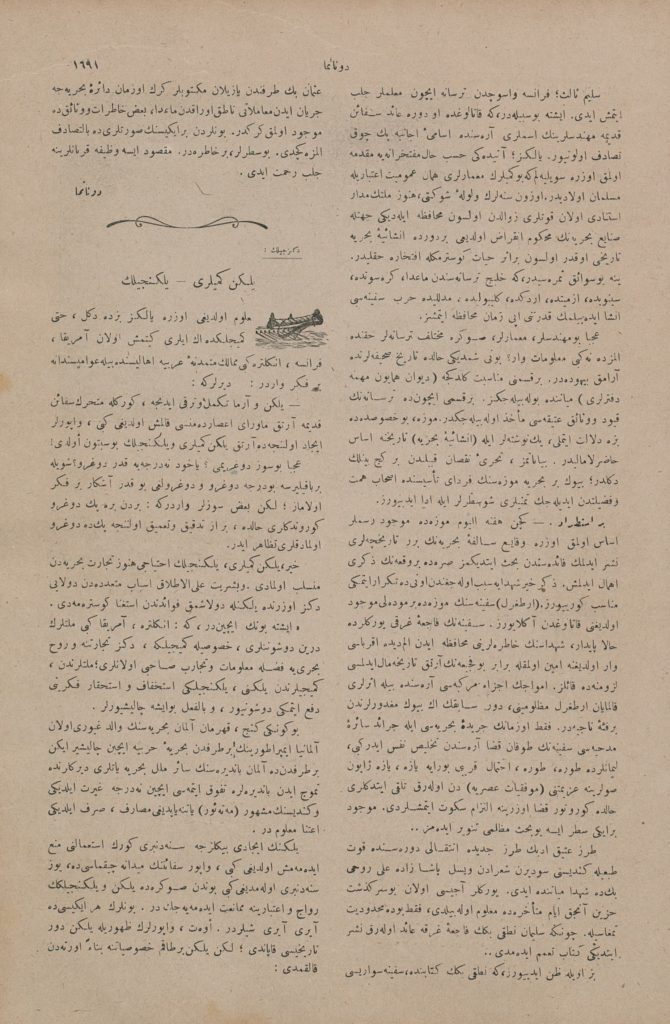 دونانما
١٦٩١
سليم ثالث؛ فرانسه واسوجدن ترسانه ايچون معلملر جلب
ايتمش ايدى. ايشته بوسيله‌در، كه قاتالوغده او دوره عائد سفائن
قديمه مهندسلرينك اسملرى آره‌سنده اسامئ اجانبه پك چوق
تصادف اولونيور. يالكز؛ آتيده‌كى حسب حال مفتخرانه‌يه مقدمه
اولمق اوزره سويليه‌لم كه بوكميلرك معمارلرى همان عموميت اعتباريله
مسلمان اولاديدر. اوزون سنه‌لرك ولوله‌ٔ شوكتى، هنوز ملتك مدار
استنادى اولان قوتلرى زوالدن اولسون محافظه ايله‌ديكى جهتله
صنايع بحريه‌نك محكوم انقراض اولديغى بردورده انشائيهٔ بحريه
تاريخى اوقدر اولسون براثر حيات كوسترمكله افتخاره حقليدر.
ينه بوسوائق ثمره‌سيدر، كه خليج ترسانه‌سندن ماعدا، كره‌سونده،
سينوبده، ازميتده، اردكده، كليبوليده . مدلليده حرب سفينه‌سى
انشا ايده‌بيلمك قدرتنى ايى زمان محافظه ايتمشز.
عجبا بومهندسلر، معمارلر، صوكره مختلف ترسانه‌لر حقنده
المزده نه كبى معلومات وار؟ بونى شمديكى حالده تاريخ صحيفه‌لرنده
آرامق بيهوده‌در. برقسمنى مناسبت كلدكجه (ديوان همايون مهمه
دفترلرى) مياننده بوله‌بيله‌جكز. برقسمى ايچون‌ده ترسانه‌نك
قيود ووثائق عتيقه‌سى مأخذ اوله‌بيله‌جكدر. موزه، بوخصوصده‌ده
بزه دلالت ايتملى، يك‌نوشته‌لر ايله (انشائيهٔ بحريه) تاريخنه اساس
حاضرلاماليدر.
دكلدر؛ بيوك بر بحريه موزه‌سنك فرداى تأسيسنده اصحاب همت
وفضيلتدن ايديله‌جك تمنيلرى شوسطرلر ايله ادا ايديبورز.
اساس اولمق اوزره وقايع سالفهٔ بحريه‌نك برر تاريخچه‌لرى
نشر ايدلمك فائده‌سندن بحث ايتديكمز صره‌ده بروقعه‌نك ذكرى
مناسب كوريبورز. (ارطغرل) سفينه‌سنك موزه‌ده برموده‌لى موجود
اولديغنى قاتالوغدن آكلايورز. سفينه‌نك فاجعهٔ غرقى يوركلرده
حالا پايدار، شهداسنك خاطره‌لرينى محافظه ايدن المديده اقرباسى
وار اولديغنه امين اولمقله برابر بوفجيعه‌نك آرتق تاريخه‌مال ايدلسى
لزومنه‌ده قائلز. امواجك اجزاء مركبه‌سى آره‌سنده بيله اثرلرى
قالمايان ارطغرل مظلومينى، دور سابقك اك بيوك مغدورلرندن
برفئهٔ ناجيه‌در. فقط اوزمانك جريدهٔ بحريه‌سى ايله جرائد سائرهٔ
مدحيه‌سى سفينه‌نك طوفان قضا آره‌سندن تخليص نفس ايدركى،
ليمانلرده طوره، طوره، احتمال قريبى بورايه يازه، يازه ژاپون
صولرينه عزيمتنى (موفقيات عصريه) دن اوله‌رق تلقى ايتدكلرى
حالده كورونور قضا اوزرينه التزام سكوت ايتمشلردى. موجود
برايكى سطر ايسه بوبحث مظلمى تنوير ايده‌مز . .
طرز عتيق ادبك طرز جديده انتقالى دوره‌سنده قوت
طبعله كنديسنى سوديرن شعرادن ويسل پاشا زاده على روحى
بك‌ده شهدا مياننده ايدى. يوركلر آجيسى اولان بوسركذشت
حزين آنجق ايام متأخره‌ده معلوم اوله‌بيلدى، فقط بوده محدوديت
تمغاسيله. چونكه سليمان نطقى بكك فاجعهٔ غرقه عائد اوله‌رق نشر
ايتديكى كتاب تعمم ايده‌مدى . .
بز اويله ظن ايديبورز، كه نطقى بكك كتابنده، سفينه سواريسى
عثمان بك طرفندن يازيلان مكتوبلر كرك اوزمان دائرهٔ بحريه‌جه
جريان ايدن معاملاتى ناطق اوراقدن ماعدا، بعض خاطرات ووثائق‌ده
موجود اولمق كركدر. بونلردن برايكيسنك صورتلرى‌ده بالتصادف
المزه كچدى. بوسطرلر، برخاطره‌در. مقصود ايسه وظيفه قربانلرينه
جلب رحمت ايدى .
دونانما
دكزجيلك :
يلكن كميلرى — يلكنجيلك
معلوم اولديغى اوزره يالكز بزده دكل ، حتى
كميجلكده اك ايلرى كيتمش اولان آمريقا ،
فرانسه ، انكلتره كبى ممالك متمدنهٔ غربيه اهاليسنده بيله عواميسندانه
بر فكر واردر : ديرلركه :
— يلكن و آرما تكمل وترقى ايدنجه ، كوركله متحرك سفائن
قديمه آرتق ماوراى اعصارده منسى قالمش اولديغى كبى ، واپورلر
ايجاد اولنجه‌ده آرتق يلكن كميلرى ويلكنجيلك بوسبتون اولدى!
عجبا بوسوز دوغريمى ؟ ياخود نه‌درجه‌يه قدر دوغرو؟ شويله
برباقيليرسه بودرجه دوغرو و دوغرولغى بو قدر آشكار بر فكر
اولاماز ؛ لكن بعض سوزلر واردركه : بردن بره پك دوغرو
كوروندكلرى حالده ، بر از تدقيق وتعميق اولنجه پك‌ده دوغرو
اولمادقلرى تظاهر ايدر.
خير، يلكن كميلرى، يلكنجيلك احتياجى هنوز تجارت بحريه‌دن
منسلب اولمادى . وبشريت على الاطلاق اسباب متعدده‌دن دولايى
دكز اوزرنده يلكنله دولاشمق فوائدندن استغنا كوستره‌مه‌دى .
ايشته بونك ايچين‌در ، كه : انكلتره ، آمريقا كبى ملتلرك
درين دوشونلرى ، خصوصيله كميجيلكله ، دكز تجارتنه و روح
بحرى‌يه فضله معلومات وتجارب صاحبى اولانلرى؛ ملتلرندن ،
كميجيلرندن يلكنى ، يلكنجيلكى استخفاف و استحقار فكرينى
دفع ايتمكى دوشونيور ، و بالفعل بوايشه چاليشيورلر .
بوكونكى كنج ، قهرمان آلمان بحريه‌سنك والد غيورى اولان
آلمانيا ايمپراطورينك برطرفدن بحريهٔ حربيه ايچين چاليشير ايكن
برطرفدن‌ده آلمان بانديره‌سنك سائر ملل بحريه ياتلرى ديركلرنده
تموج ايدن بانديره‌لره تفوق ايتمه‌سى ايچين نه‌درجه غيرت ايلديكى
وكنديسنك مشهور (مه‌ته‌ئور) ياتنه ياپديغى مصارف ، صرف ايلديكى
اعتنا معلوم در .
يلكنك ايجادى بيكلرجه سنه‌دنبرى كورك استعمالنى منع
ايده‌مه‌مش اولديغى كبى ، واپور سفائنك ميدانه چيقماسى‌ده، يوز
سنه‌دنبرى اوله‌مديغى كبى بوندن صوكره‌ده يلكن و يلكنجيلكك
رواج و اعتبارينه ممانعت ايده‌مه‌يه‌جك‌در . بونلرك هر ايكيسى‌ده
آيرى آيرى شيلردر . أوه‌ت ، واپورلرك ظهوريله يلكن دور
تاريخيسى قاپاندى ؛ لكن يلكن برطاقم خصوصياتنه بناءً اورته‌دن
قالقمدى :